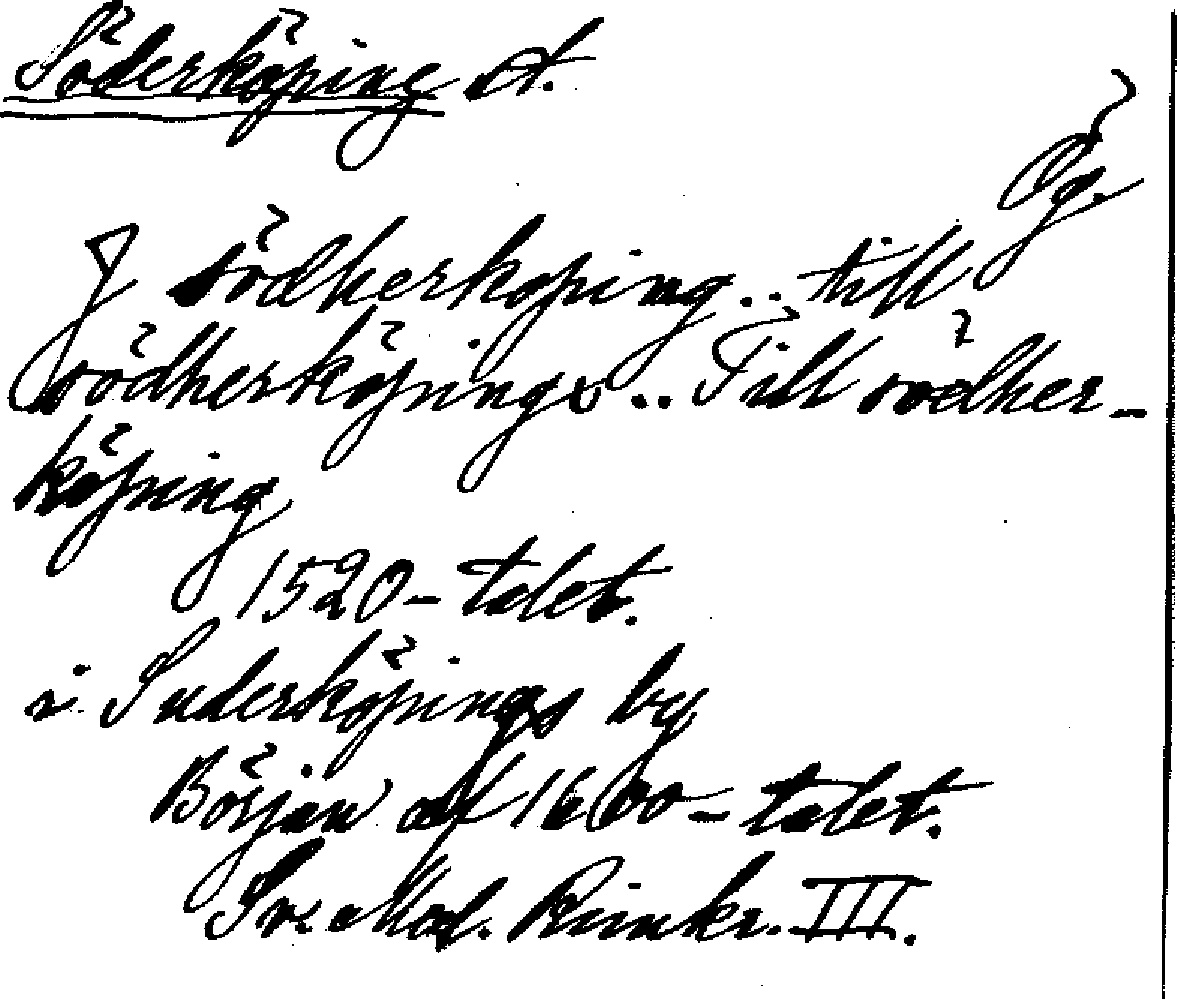 Söderköping st.
Ög.
J södherkoping.. till
södherköpings.. Till södher-
köping
1520-talet.
i Suderköpings by
Början af 1600-talet.
Sv. Med. Rimkr. III.